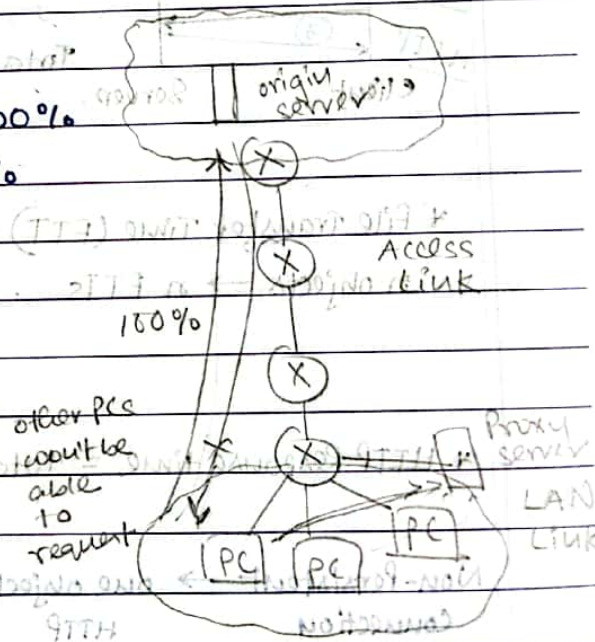 00%
%
origin
server
Access
Link
100%
other PCs
won't be
able
to
request
Proxy
server
LAN
Link
PC
PC
PC